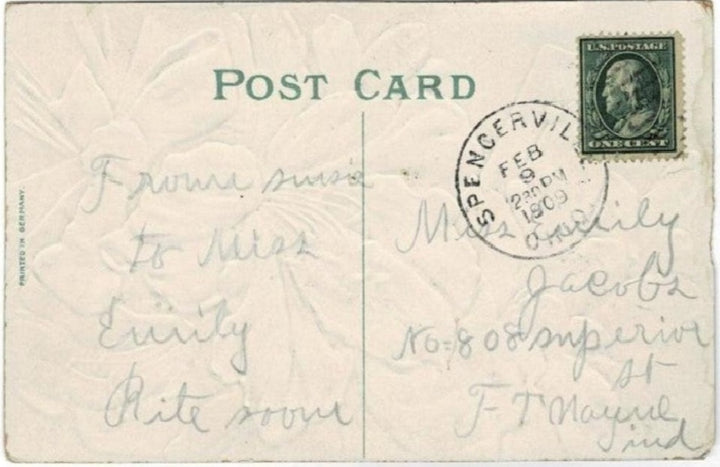 POST CARD
U.S. POSTAGE
ONE CENT
SPENCERVIL
FEB
9
230 PM
1909
OHIO
PRINTED IN GERMANY.
Frome susie
to Miss
Emily
Rite soone
Miss Emily
Jacobs
No-808 superior
st
FT Wayne
ind